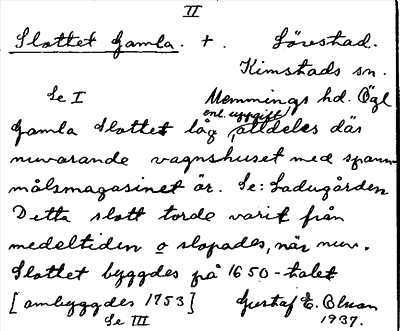 II
Slottet Gamla. +. Lövestad.
Kimstads sn.
Se I Memmings hd. Ögl
enl. uppgift
Gamla Slottet låg alldeles där
nuvarande vagnshuset med spann-
målsmagasinet är. Se: Ladugården
Detta slott torde varit från
medeltiden o slopades, när nuv.
Slottet byggdes på 1650-talet
[ombyggdes 1753] Gustaf E. Olson
Se III 1937.